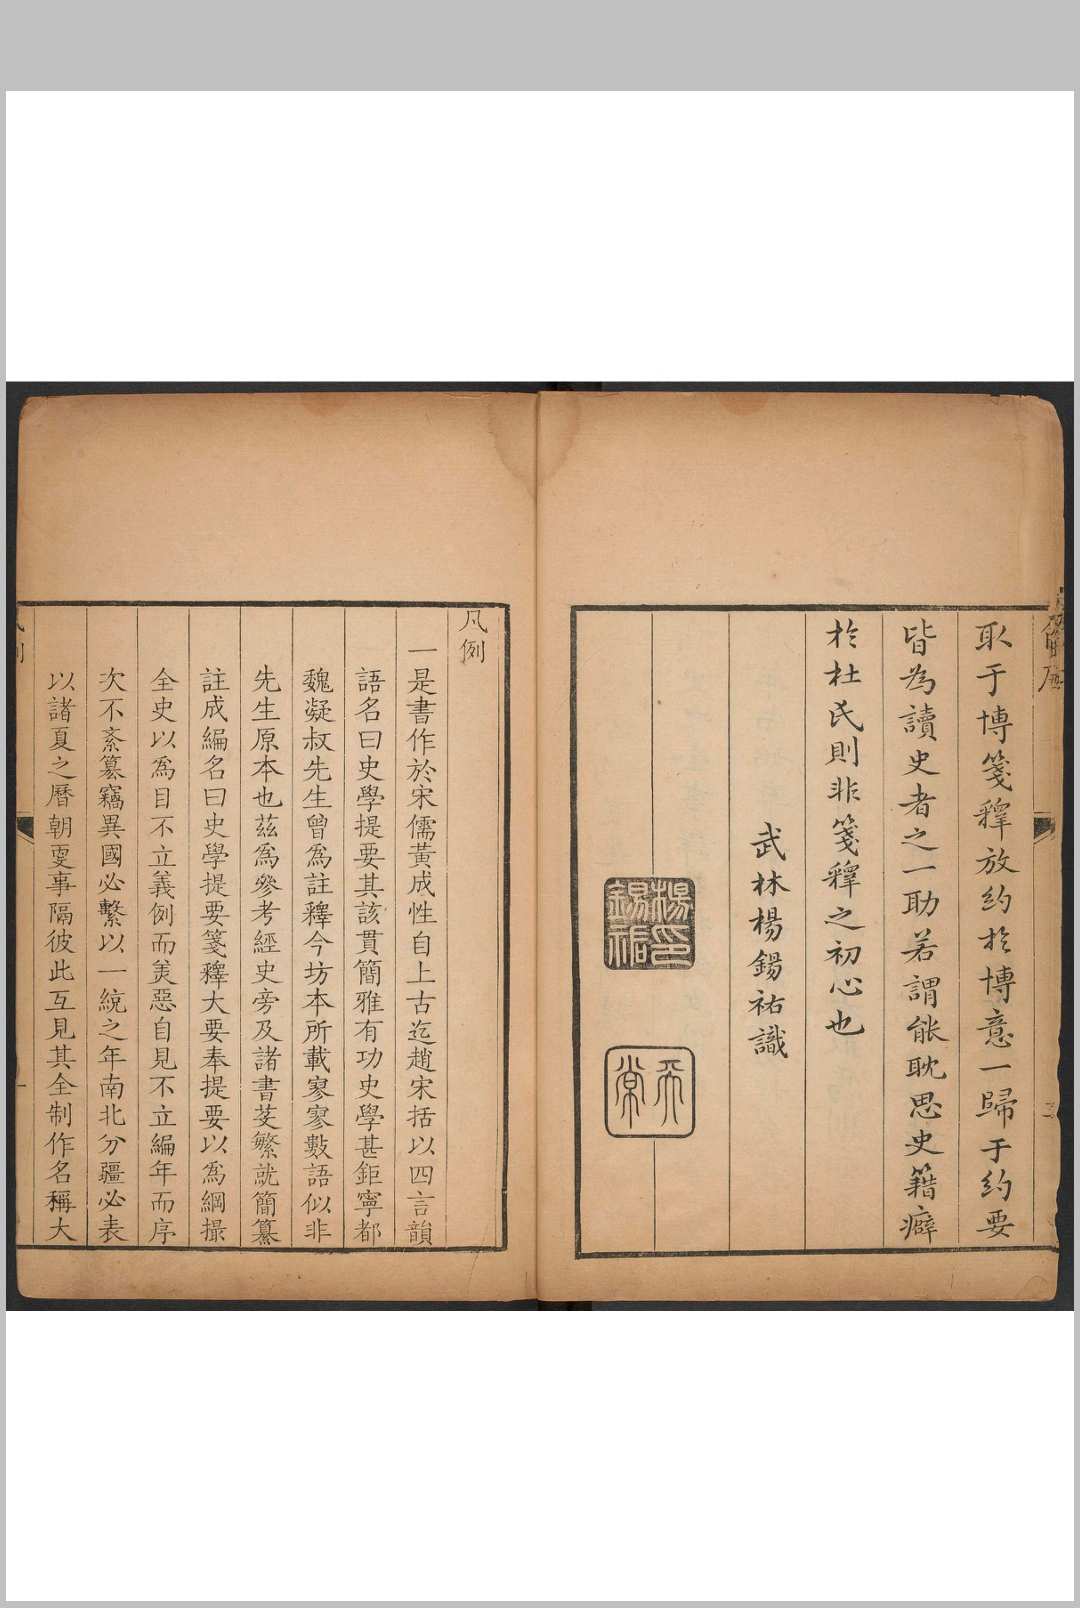 取于博箋釋放約扵博意一歸于約要
皆為讀史者之一助若謂能耽思史籍癖
扵杜氏則非箋釋之初心也
武林楊錫祐識
楊印錫祐
凡例
一是書作於宋儒黃成性自上古迄趙宋括以四言韻
語名曰史學提要其該貫簡雅有功史學甚鉅寧都
魏凝叔先生曾爲註釋今坊本所載寥寥數語似非
先生原本也茲爲參考經史旁及諸書芟繁就簡纂
註成編名曰史學提要箋釋大要奉提要以爲綱撮
全史以爲目不立義例而美惡自見不立編年而序
次不紊篡竊異國必繫以一統之年南北分疆必表
以諸夏之曆朝更事隔彼此互見其全制作名稱大